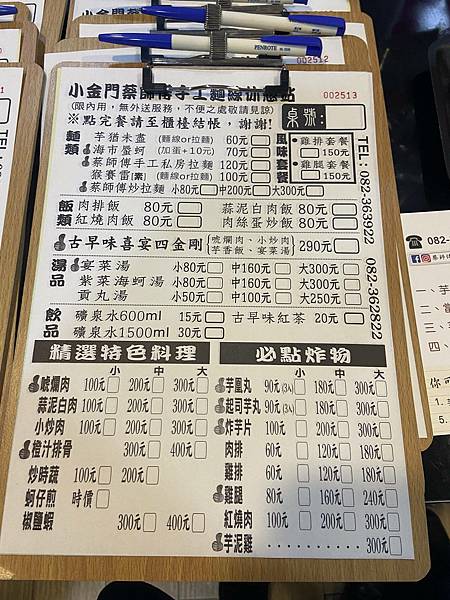 PENROTE
小金門蔡師傅手工麵線休憩站
002513
(限內用，無外送服務，不便之處敬請見諒)
※點完餐請至櫃檯結帳，謝謝!
桌號:
麵類
芋猶未盡 (麵線or拉麵) 60元
海市蜃蚵 (加蛋+10元) 70元
蔡師傅手工私房拉麵 120元
猴賽雷(素) (麵線or拉麵) 100元
蔡師傅炒拉麵 小80元 中200元 大300元
風味套餐
雞排套餐 150元
雞腿套餐 150元
TEL: 082-363922
082-362822
飯類
肉排飯 80元 蒜泥白肉飯 80元
紅燒肉飯 80元 肉絲蛋炒飯 80元
古早味喜宴四金剛 (唬爛肉、小炒肉 芋香飯、宴菜湯) 290元
湯品
宴菜湯 小80元 中160元 大300元
紫菜海蚵湯 小80元 中160元 大300元
貢丸湯 小50元 中100元 大250元
飲品
礦泉水600ml 15元 古早味紅茶 20元
礦泉水1500ml 30元
精選特色料理
小 中 大
唬爛肉 100元 200元 300元
蒜泥白肉 100元 200元 300元
小炒肉 100元 200元 300元
橙汁排骨 300元 400元
炒時蔬 100元 200元
蚵仔煎 時價
椒鹽蝦 300元 400元
必點炸物
小 中 大
芋凰丸 90元(3入) 180元 300元
起司芋丸 90元(3入) 180元 300元
炸芋片 100元 200元 300元
肉排 60元 120元 180元
雞排 60元 120元 180元
雞腿 80元 160元 240元
紅燒肉 100元 200元 300元
芋泥雞 300元
082-
一、芋
二、
三、
四、
你可
1.
5.